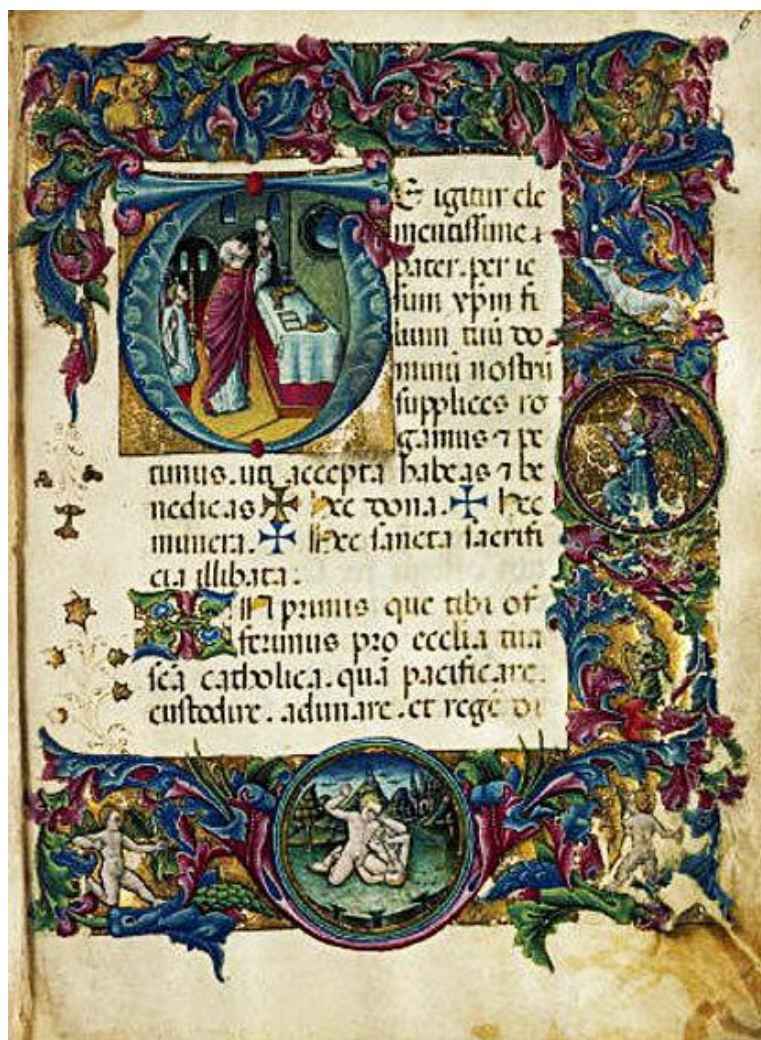 6
TE igitur cle
mentissime
pater. per ie
sum xp̄m fi
lium tuū do
minū nostrū
supplices ro
gamus ⁊ pe
timus. uti accepta habeas ⁊ be
nedicas ✠ hec dona. ✠ hec
munera. ✠ hec sancta sacrifi
cia illibata:
IN primis que tibi of
ferimus pro ecclīa tua
sc̄a catholica. quā pacificare.
custodire. adunare. et regē di